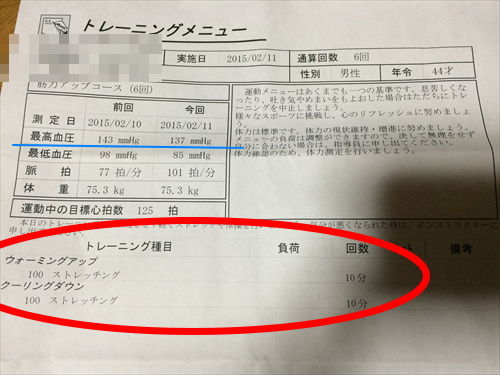 トレーニングメニュー
実施日 2015/02/11 通算回数 6回
性別 男性 年令 44才
筋力アップコース (6回)
前回 今回
測定日 2015/02/10 2015/02/11
最高血圧 143 mmHg 137 mmHg
最低血圧 98 mmHg 85 mmHg
脈拍 77 拍/分 101 拍/分
体重 75.3 kg 75.3 kg
運動中の目標心拍数 125 拍
運動メニューはあくまでも一つの基準です。息苦しく
なったり、吐き気やめまいをもよおした場合はただちにトレ
ーニングを中止しましょう。
様々なスポーツに挑戦し、心のリフレッシュに努めましょ
う。
体力は標準です。体力の現状維持・増進に努めましょう。
メニューの負荷は調整ができますので、決して無理をせず
自分に合わない場合は、指導員に申し出てください。
体力確認のため、体力測定を行いましょう。
本日のトレー
気分が悪くなられた時は、インストラクターに
申し出
トレーニング種目 負荷 回数 備考
ウォーミングアップ
100 ストレッチング 10分
クーリングダウン
100 ストレッチング 10分